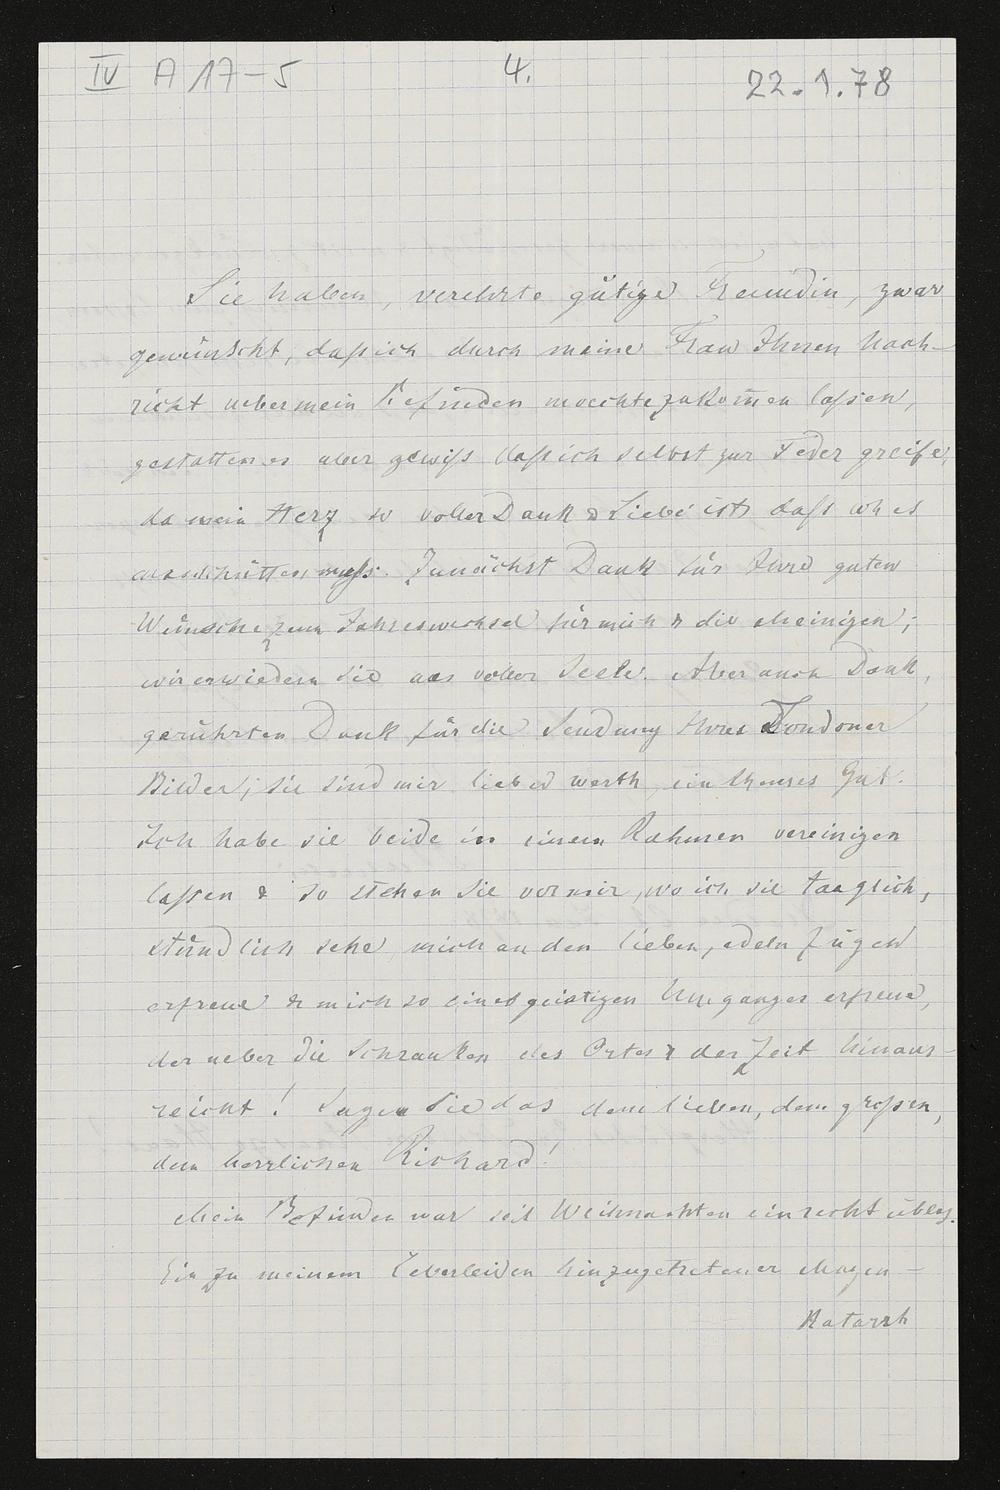 IV A 17-5 4. 22.1.78
Sie haben, verehrte gütige Freundin, zwar
gewünscht, daß ich durch meine Frau Ihnen Nach-
richt ueber mein Befinden moechte zukom̅en laßen,
gestatten es aber gewiß daß ich selbst zur Feder greife,
da mein Herz so voller Dank & Liebe ist, daß ich es
ausschütten muß. Zunächst Dank für Ihre guten
Wünsche zum Jahreswechsel für mich & die Meinigen;
wir erwiedern sie aus voller Seele. Aber auch Dank,
gerührten Dank für die Sendung Ihrer Londoner
Bilder; sie sind mir lieb & werth, ein theures Gut.
Ich habe sie beide in einem Rahmen vereinigen
laßen & so stehen sie vor mir, wo ich sie taeglich,
stündlich sehe, mich an den lieben, edeln Zügen
erfreue & mich so eines geistigen Umganges erfreue,
der ueber die Schranken des Ortes & der Zeit hinaus-
reicht! Sagen Sie das dem lieben, dem großen,
dem herrlichen Richard!
Mein Befinden war seit Weihnachten ein recht übles.
Ein zu meinem Leberleiden hinzugetretener Magen-
Katarrh